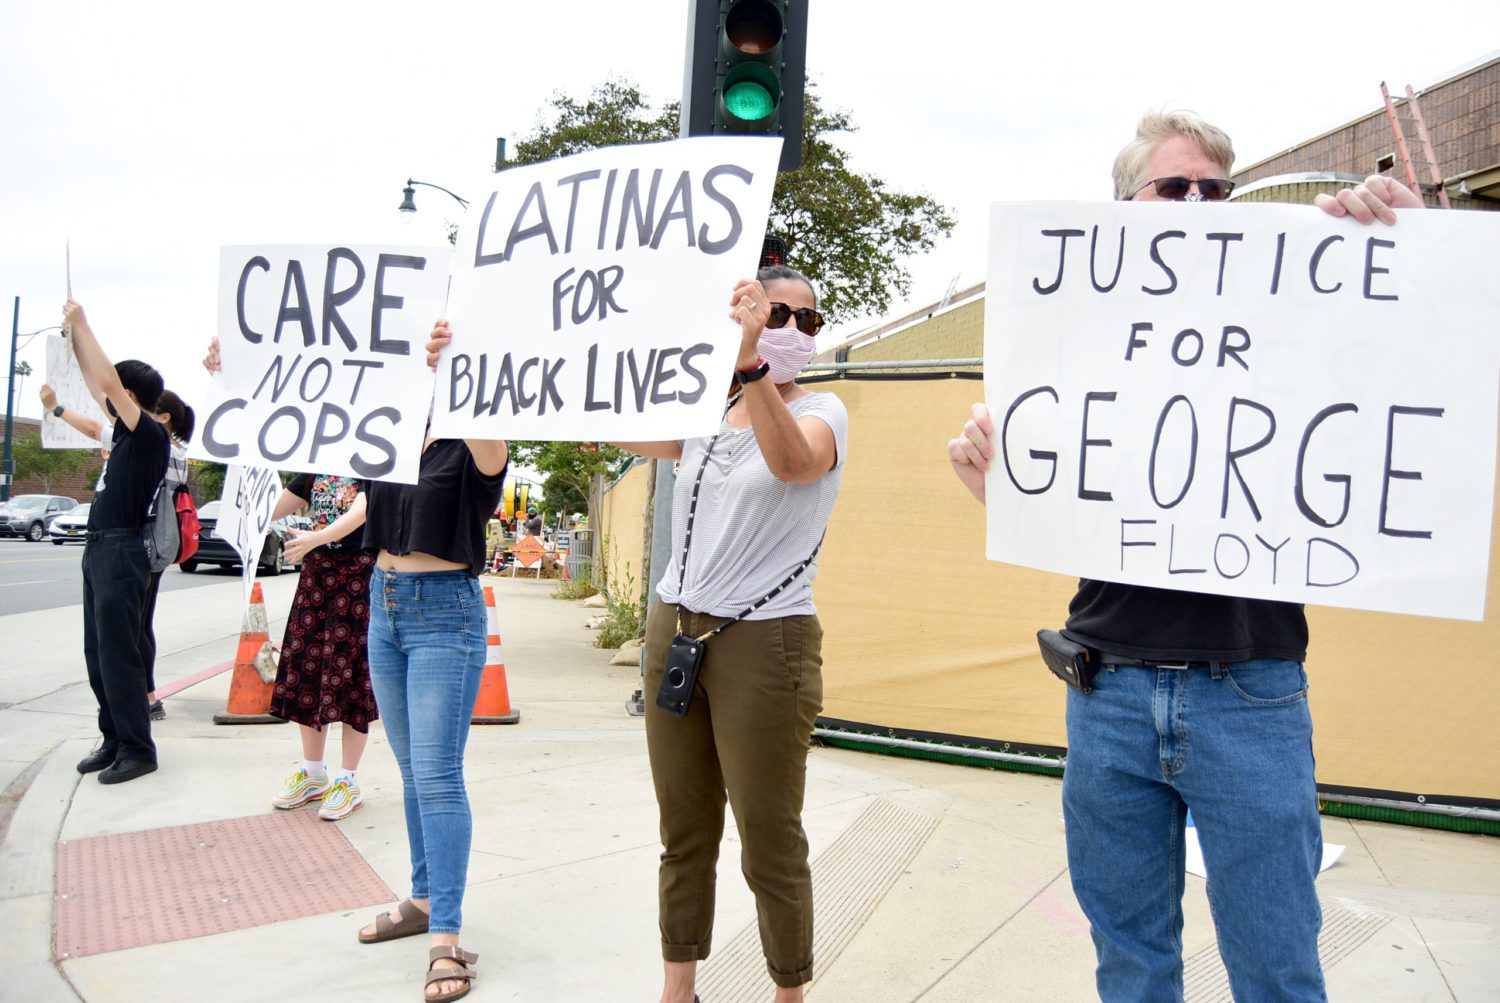 CARE
NOT
COPS
LATINAS
FOR
BLACK LIVES
JUSTICE
FOR
GEORGE
FLOYD